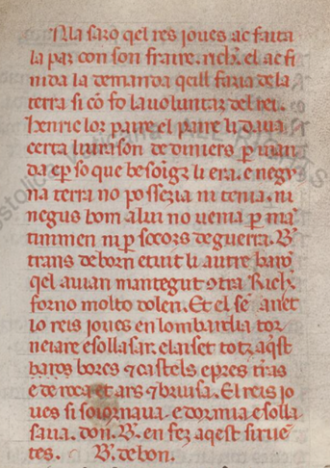 Ala saro qel res ioues ac faita
la paz con son fraire. richt. el ac fi
nida la demanda qeill faria de la
terra si co fo la uoluntaz del rei.
henric lor paire el paire li daua
certa liurason de diniers p uian
da e p so que besoigz li era. e negu
na terra no possezia ni tenia. ni
negus hom a lui no uenia p ma
timmen ni p socors de guerra. B'
trans de born e tuit li autre baro
qel auian mantegut otra Rich.
forno molto dolen. Et el se anet
lo reis ioues en lombardia tor
neiare e sollasar. e laiset totz aqst
baros
borcs e castels e pres tras
e de roca et ars e bruisa. El reis io
ues si soiornaua. e dormia e solla
saua. don. B. en fez aqest siruen
tes. B. de bon.